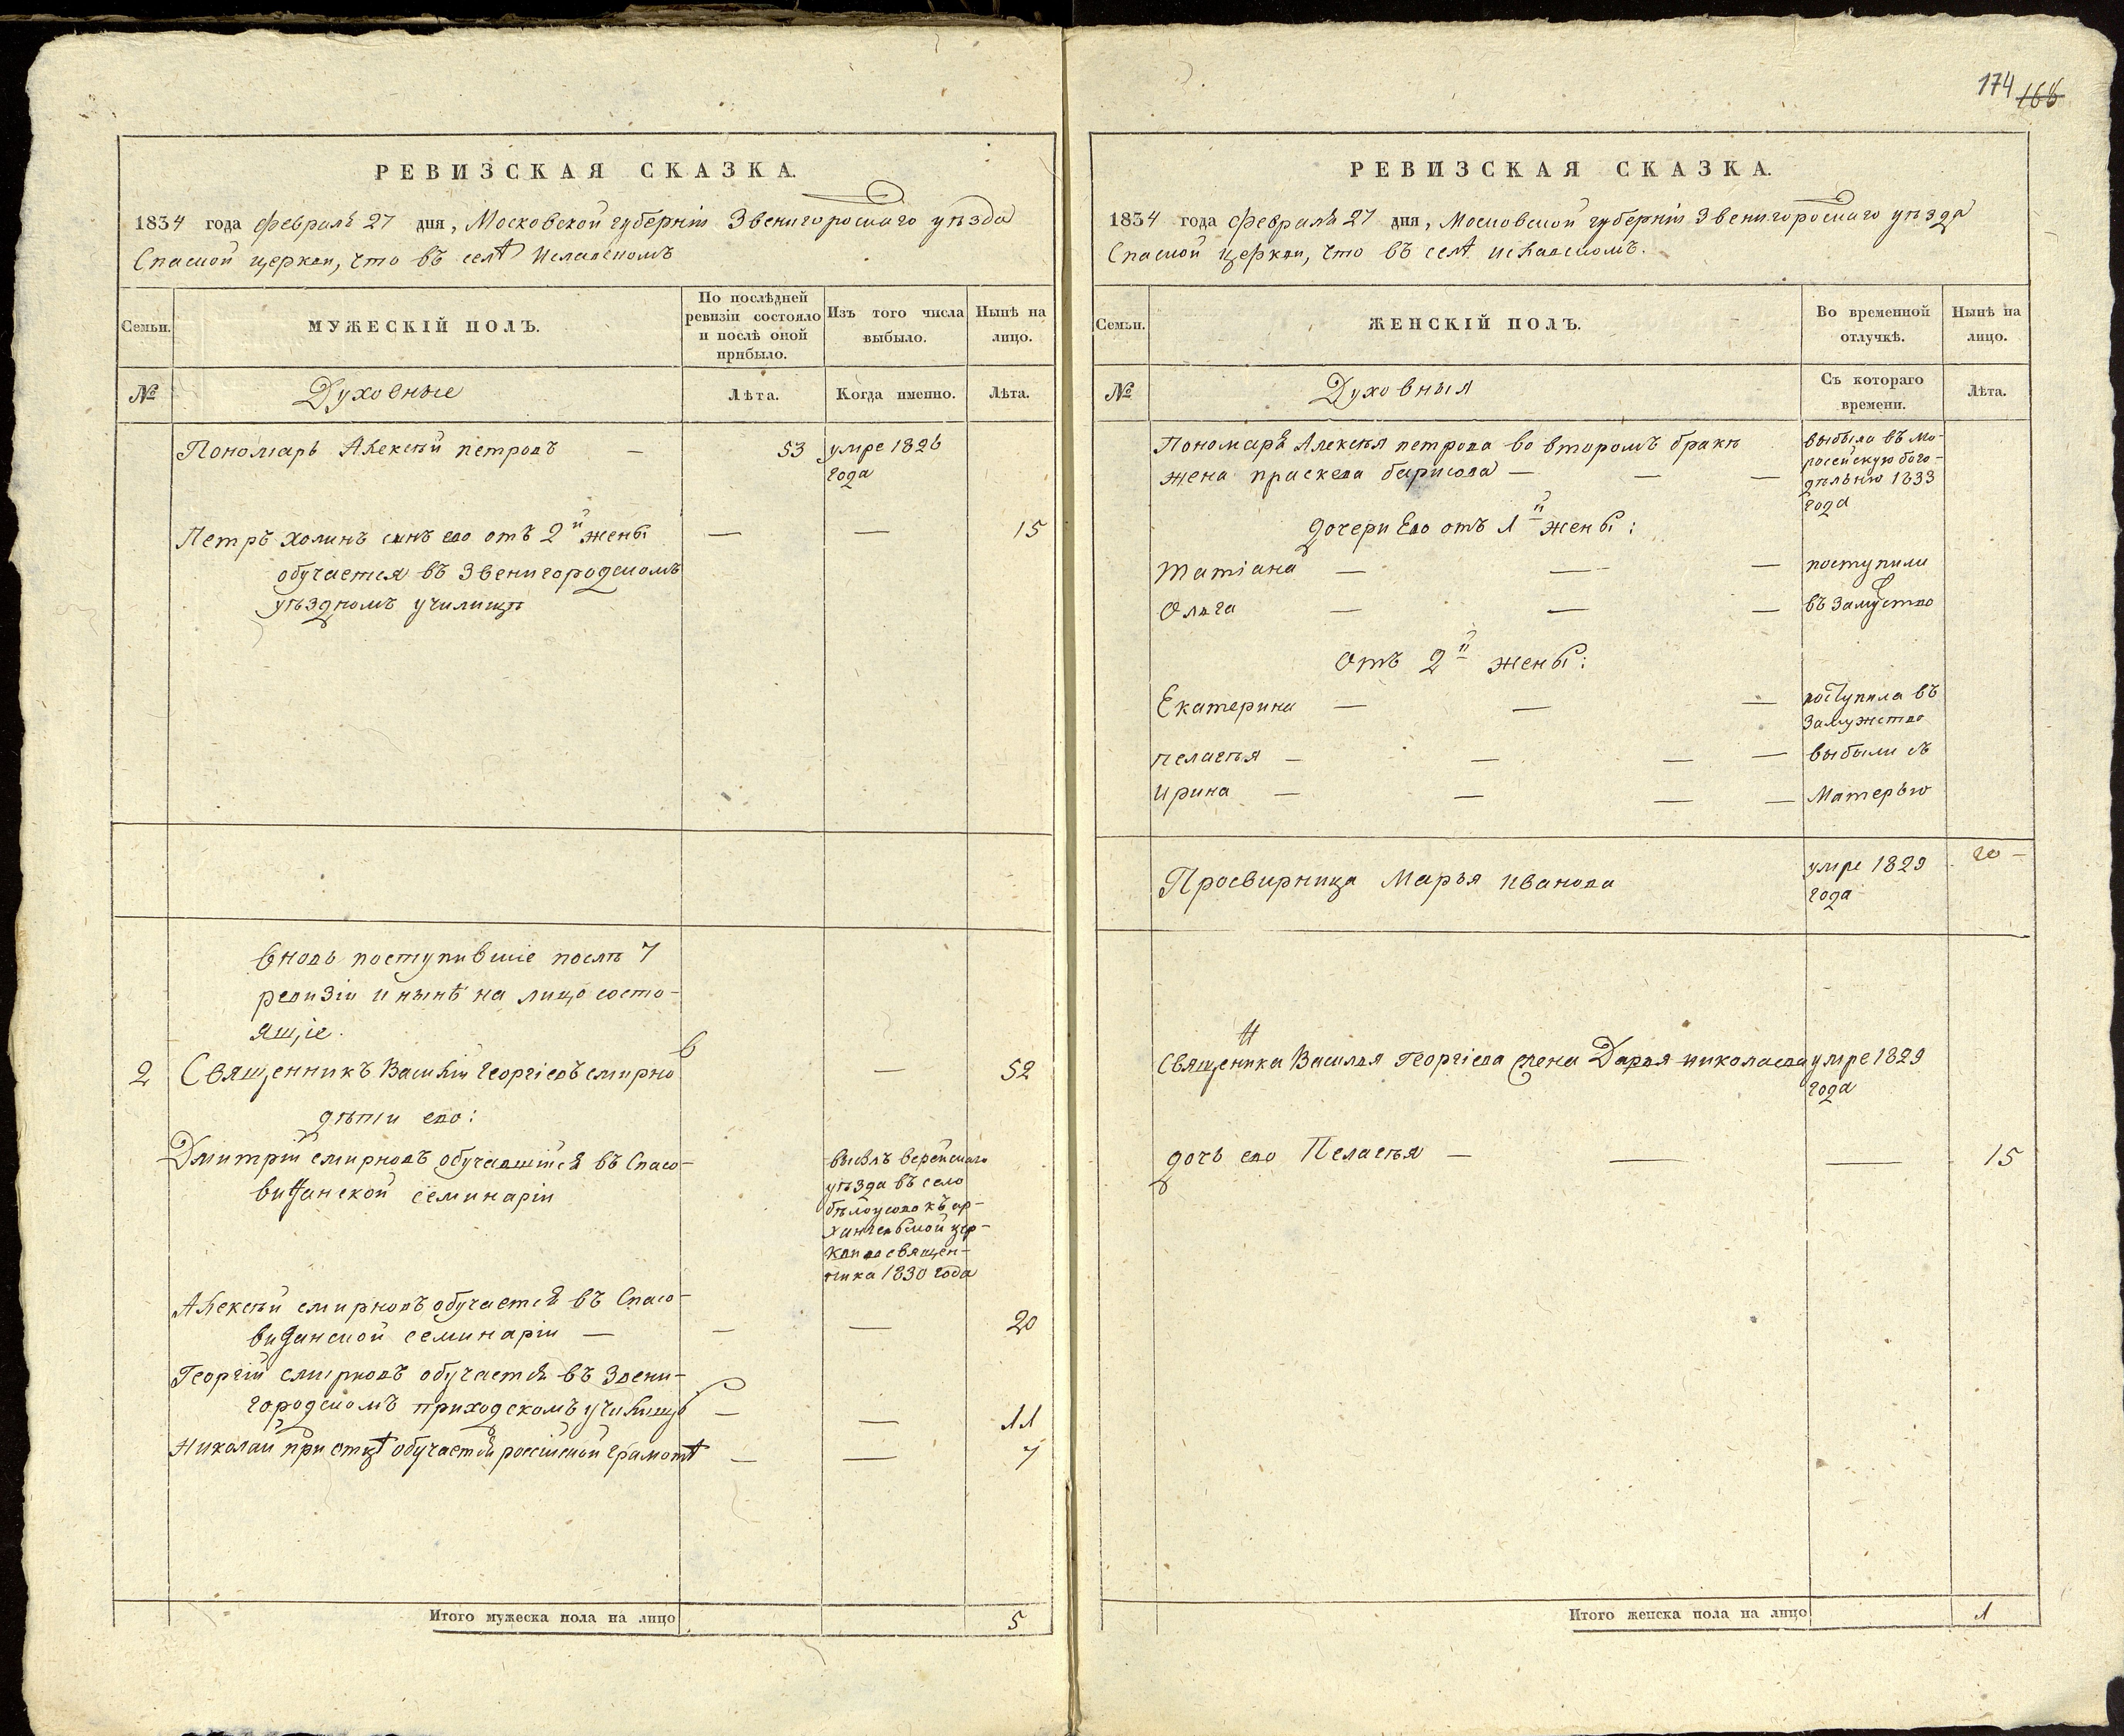 174 166
РЕВИЗСКАЯ СКАЗКА.
1834 года февраля 27 дня, Московской губерніи Звенигороскаго уѣзда
Спаской церкви, что въ селѣ Иславскомъ
Семьи.
МУЖЕСКІЙ ПОЛЪ.
По послѣдней ревизіи состояло и послѣ оной прибыло.
Изъ того числа выбыло.
Нынѣ на лицо.
№
Духовные
Лѣта.
Когда именно.
Лѣта.
Пономарь Алексѣй петровъ — 53 умре 1826
года
Петръ холинъ сынъ ево отъ 2й жены — — 15
обучается въ Звенигородскомъ
уѣздномъ училищѣ
Вновь поступившіе послѣ 7
ревизіи и нынѣ на лицо состо-
ящіе.
2 Священникъ Василій Георгіевъ смирно
в — 52
дѣти ево:
Дмитрій смирновъ обучавшійся въ Спасо-
виѳанской семинаріи
выбылъ верейскаго
уѣзда въ село
бѣлоусово къ ар-
хангельской цер-
кви во священ-
ника 1830 года
Алексѣй смирновъ обучается въ Спасо-
виѳанской семинаріи — — — 20
Георгій смирновъ обучается въ Звени-
городскомъ приходскомъ училищѣ — — 11
Николай при отцѣ обучается россійской грамотѣ — — 7
Итого мужеска пола на лицо 5
РЕВИЗСКАЯ СКАЗКА.
1834 года февраля 27 дня, Московской губерніи Звенигороскаго уѣзда
Спаской церкви, что въ селѣ иславскомъ.
Семьи.
ЖЕНСКІЙ ПОЛЪ.
Во временной отлучкѣ.
Нынѣ на лицо.
№
Духовныя
Съ котораго времени.
Лѣта.
Пономаря Алексѣя петрова во второмъ бракѣ
жена праскева барисова — — —
выбыла въ мо-
росейскую бого-
дѣльню 1833
года
дочери Ево отъ 1й жены:
Татіана — — — поступили
Ольга — — — въ замуство
Отъ 2й жены:
Екатерина — — — поступила въ
замужство
пелагѣя — — — — выбыли съ
Ирина — — — — Матерью
Просвирница Марья иванова умре 1829
года
20 —
Священика Василья Георгіева жена Дарья николаева умре 1829
н
года
дочь ево Пелагѣя — — — 15
Итого женска пола на лицо 1